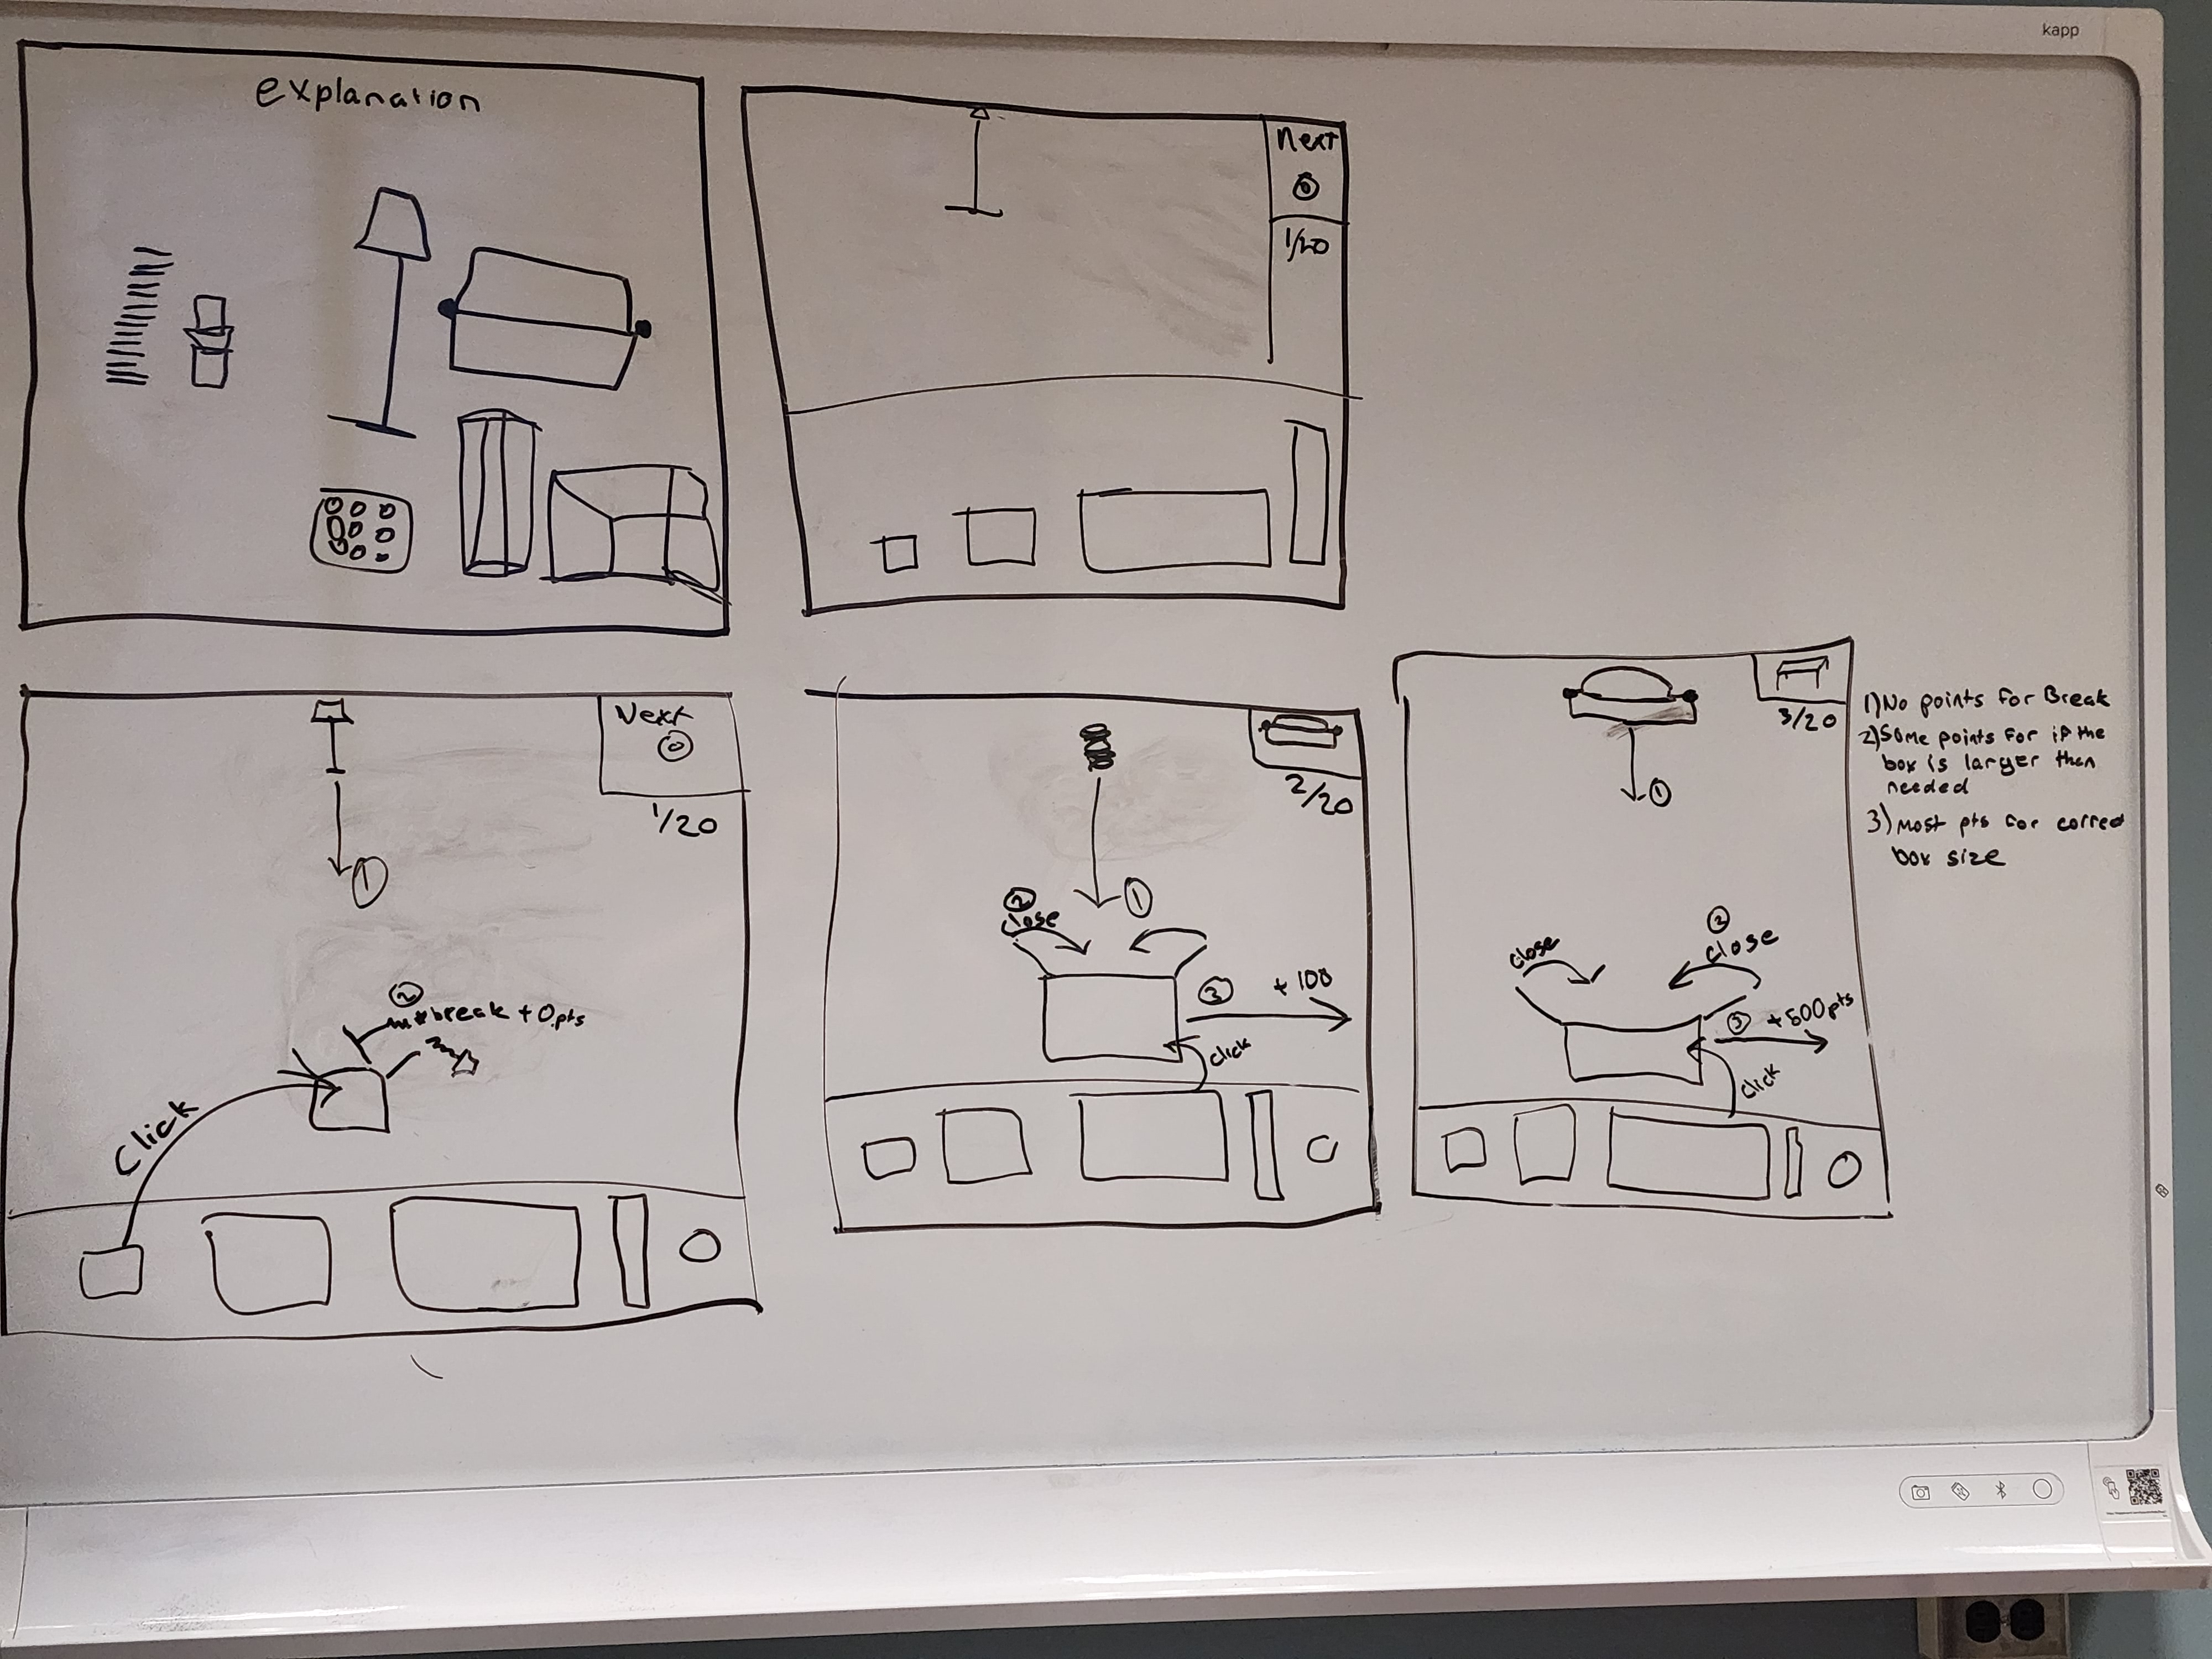 kapp
explanation
Next
1/20
Next
1/20
1
2
break + 0 pts
Click
2/20
1
2
close
3
+ 100
click
3/20
1
close
2
close
3
+500pts
click
1) No points for Break
2) Some points for if the
box is larger then
needed
3) most pts for correct
box size